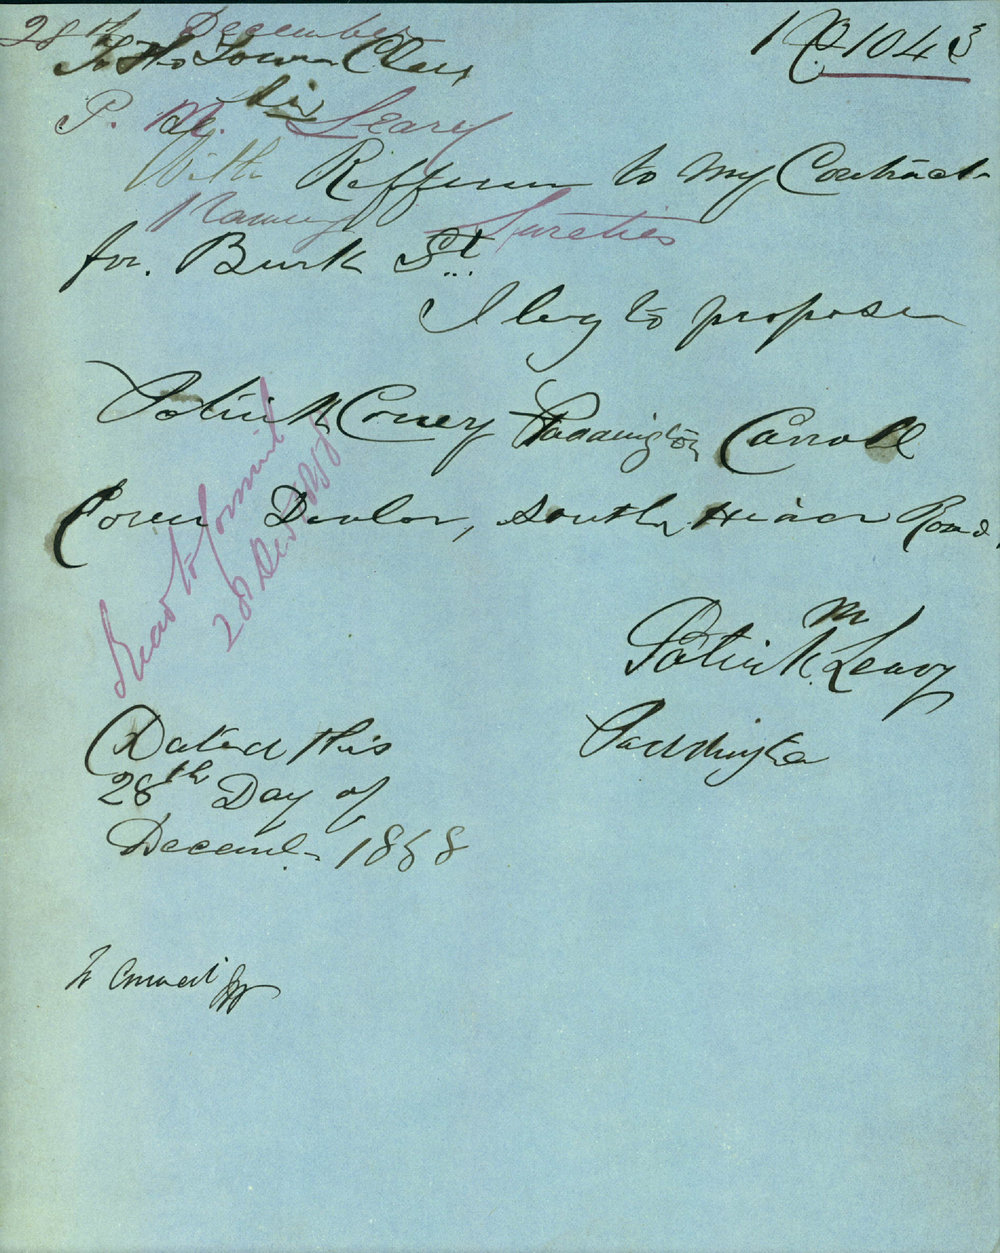 28th December
1043
To the Town Clerk
Sir
P. M. Leary
With Refference to my Contract
Naming Sureties
for. Burk St
I beg to propose
Patrick Coney Paddington Carroll
Coren Dealor, South Head Road,
Read to Council
28 Dec 1868
Patrick M Leary
Paddington
Dated this
28th Day of
December 1868